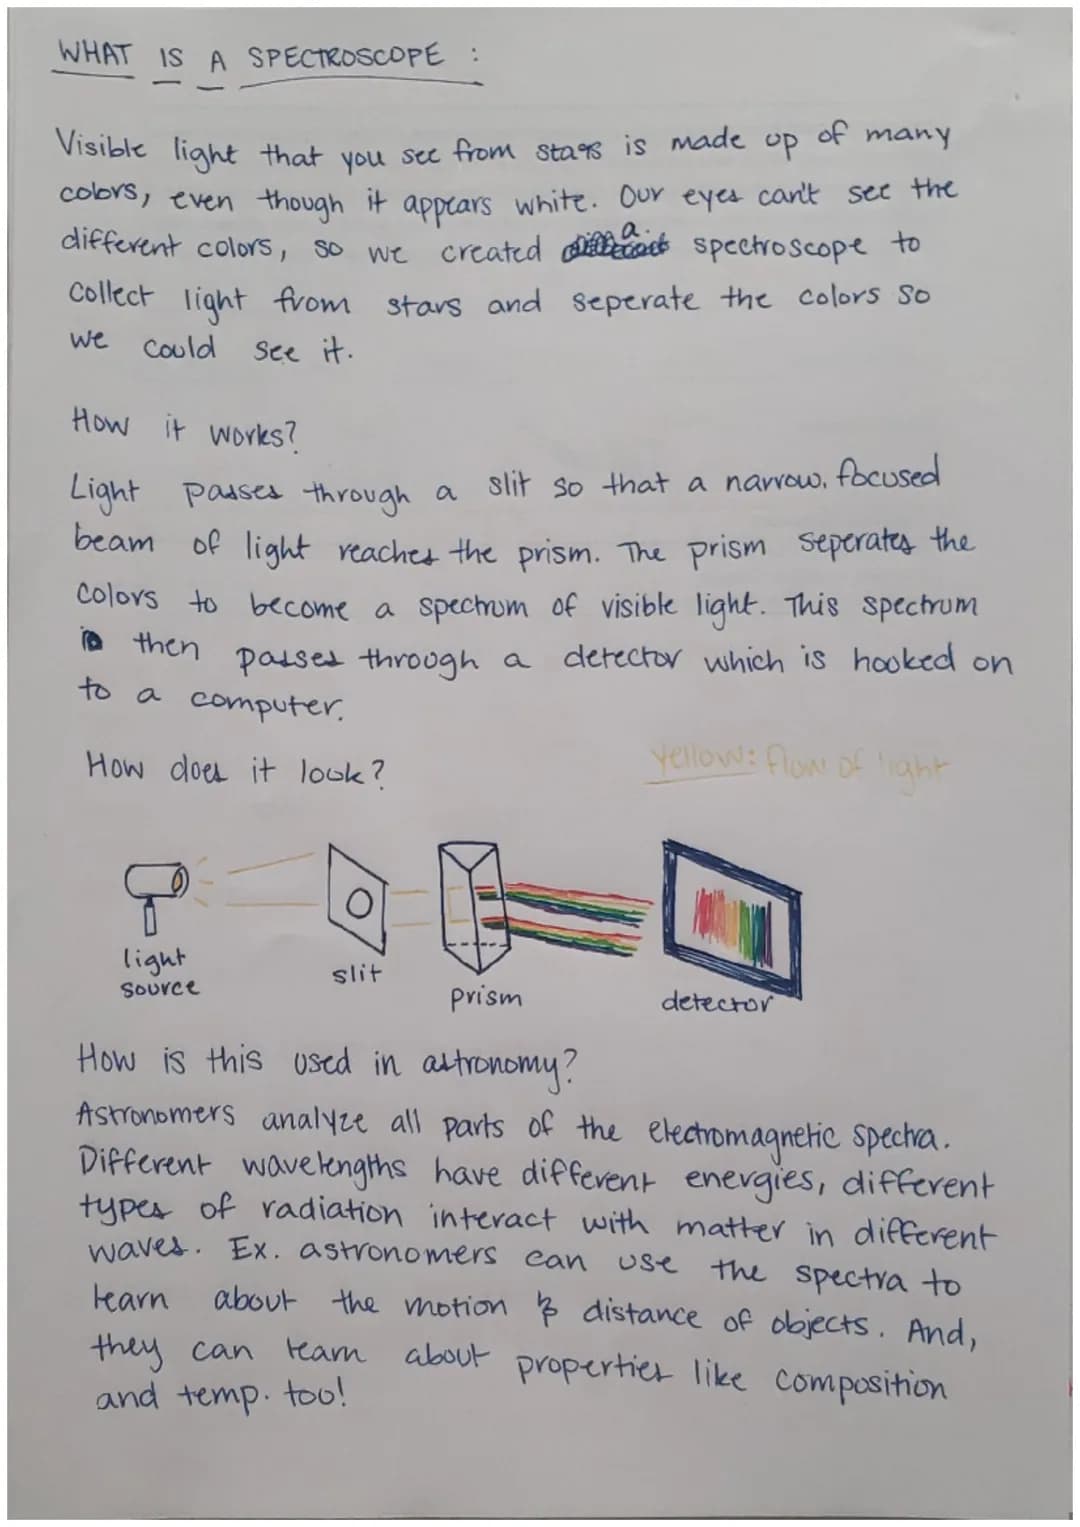 WHAT IS A SPECTROSCOPE :
Visible light that you see from stars is made up of many
colors, even though it appears white. Our eyes can't see the
different colors, so we created a spectroscope to
collect light from stars and seperate the colors so
we could see it.
How it works?
Light passes through a slit so that a narrow, focused
beam of light reaches the prism. The prism seperates the
colors to become a spectrum of visible light. This spectrum
then passes through a detector which is hooked on
to a computer.
How does it look?
Yellow: flow of light
light
source
slit
prism
detector
How is this used in astronomy?
Astronomers analyze all parts of the electromagnetic spectra.
Different wavelengths have different energies, different
types of radiation interact with matter in different
waves. Ex. astronomers can use the spectra to
learn about the motion & distance of objects. And,
they can learn about properties like composition
and temp. too!